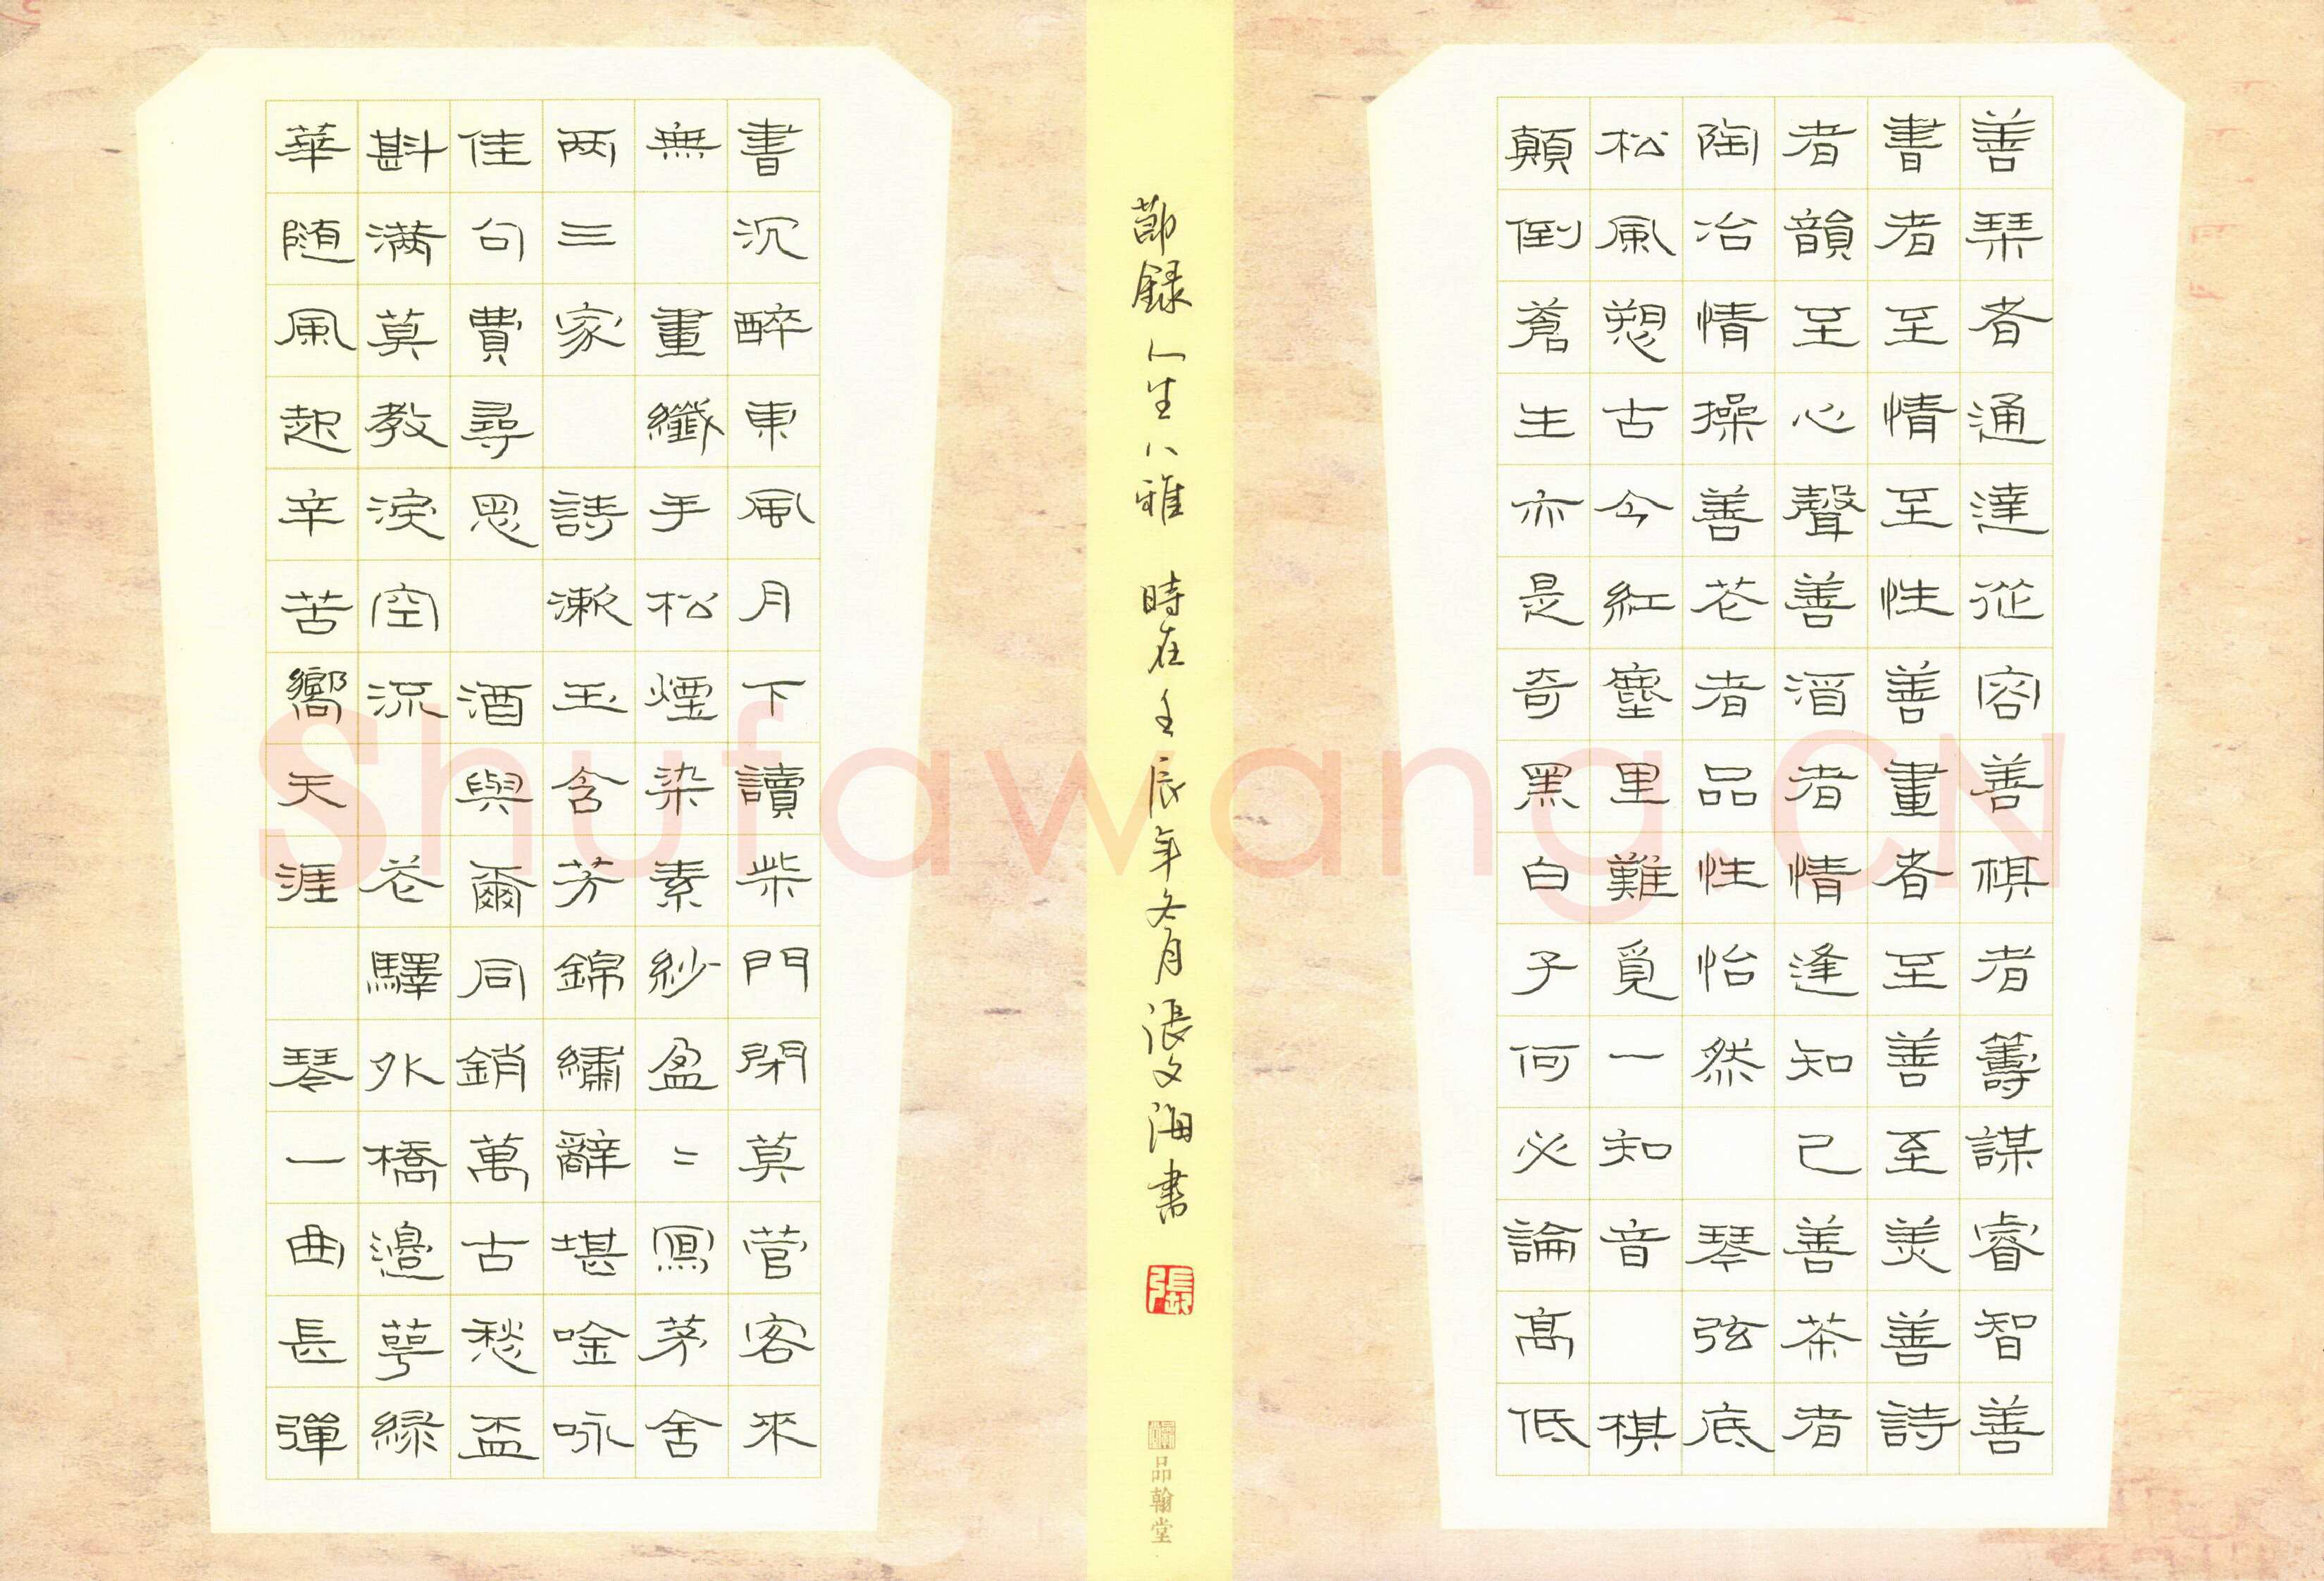 善琹者通達從容善棋者籌謀睿智善
書者至情至性善畫者至善至美善詩
者韻至心聲善酒者情逢知己善茶者
陶冶情操善花者品性怡然 琴弦底
松風愬古今紅塵里難覓一知音 棋
顛倒蒼生亦是奇黑白子何必論高低
節錄人生八雅 時在壬辰年冬月張文海書
張
品翰堂
書沉醉東風月下讀柴門閉莫管客來
無 畫纖手松煙染素紗盈〻寫茅舍
两三家 詩漱玉含芳錦繡辭堪唫咏
佳句費尋思 酒與爾同銷萬古愁盃
斟滿莫教淚空流 花驛外橋邊萼緑
華随風起辛苦嚮天涯 琴一曲長彈
Shufawang.CN